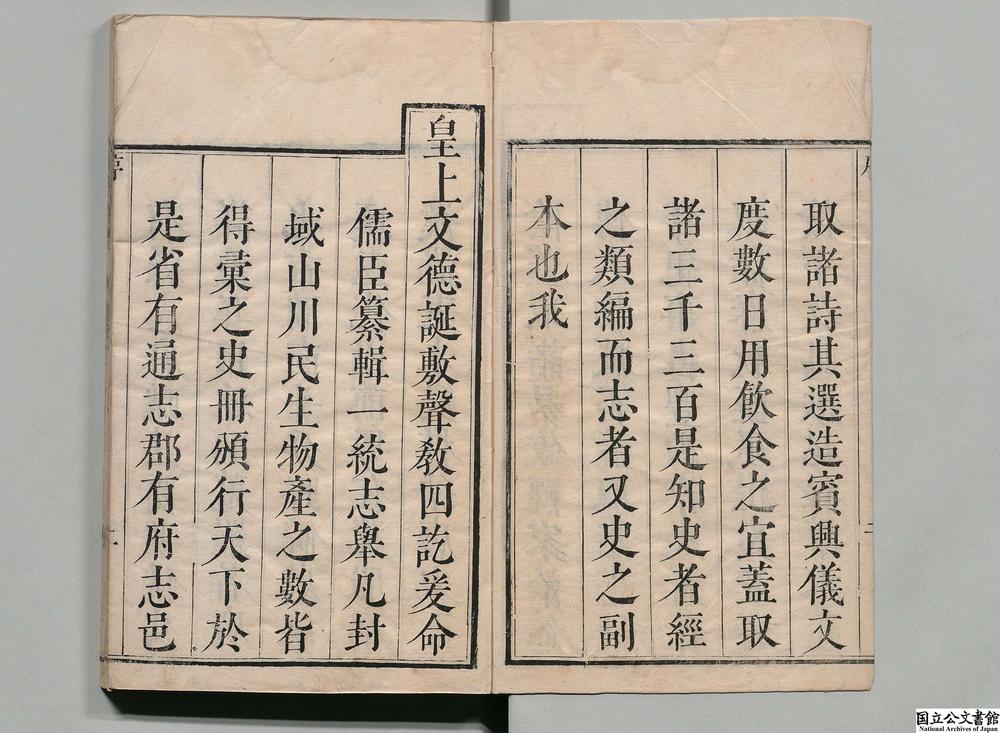 取諸詩其選造賓興儀文
度數日用飲食之宜蓋取
諸三千三百是知史者經
之類編而志者又史之副
本也我
皇上文德誕敷聲教四訖爰命
儒臣纂輯一統志舉凡封
域山川民生物產之數皆
得彙之史冊頒行天下於
是省有通志郡有府志邑
序
二
国立公文書館
National Archives of Japan